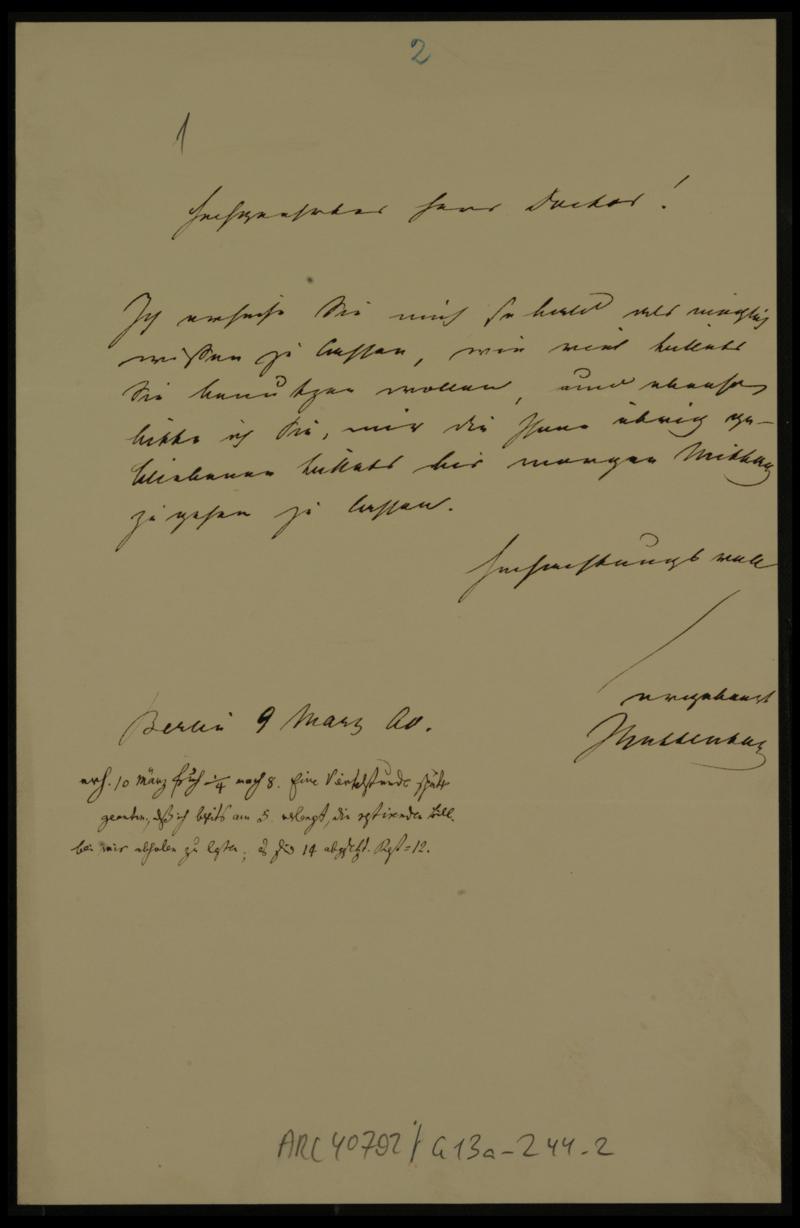 2
1
Hochgeehrter Herr Doctor!
Ich ersuche Sie mich so bald als möglich
wissen zu lassen, wie viel Billets
Sie benutzen wollen, und ebenso
bitte ich Sie, mir die Ihnen übrig ge-
bliebenen Billets bis morgen Mittag
zugehen zu lassen.
Hochachtungsvoll
ergebenst
Berlin 9 März 60.
erh. 10 März früh 1/4 nach 8. Eine Viertelstunde später
ich bereits am 5. verlangt, die Bill.
bei mir abholen zu lassen; es sind 14 abgesetzt. Rest = 12.
ARC 40792 / G13a-244-2